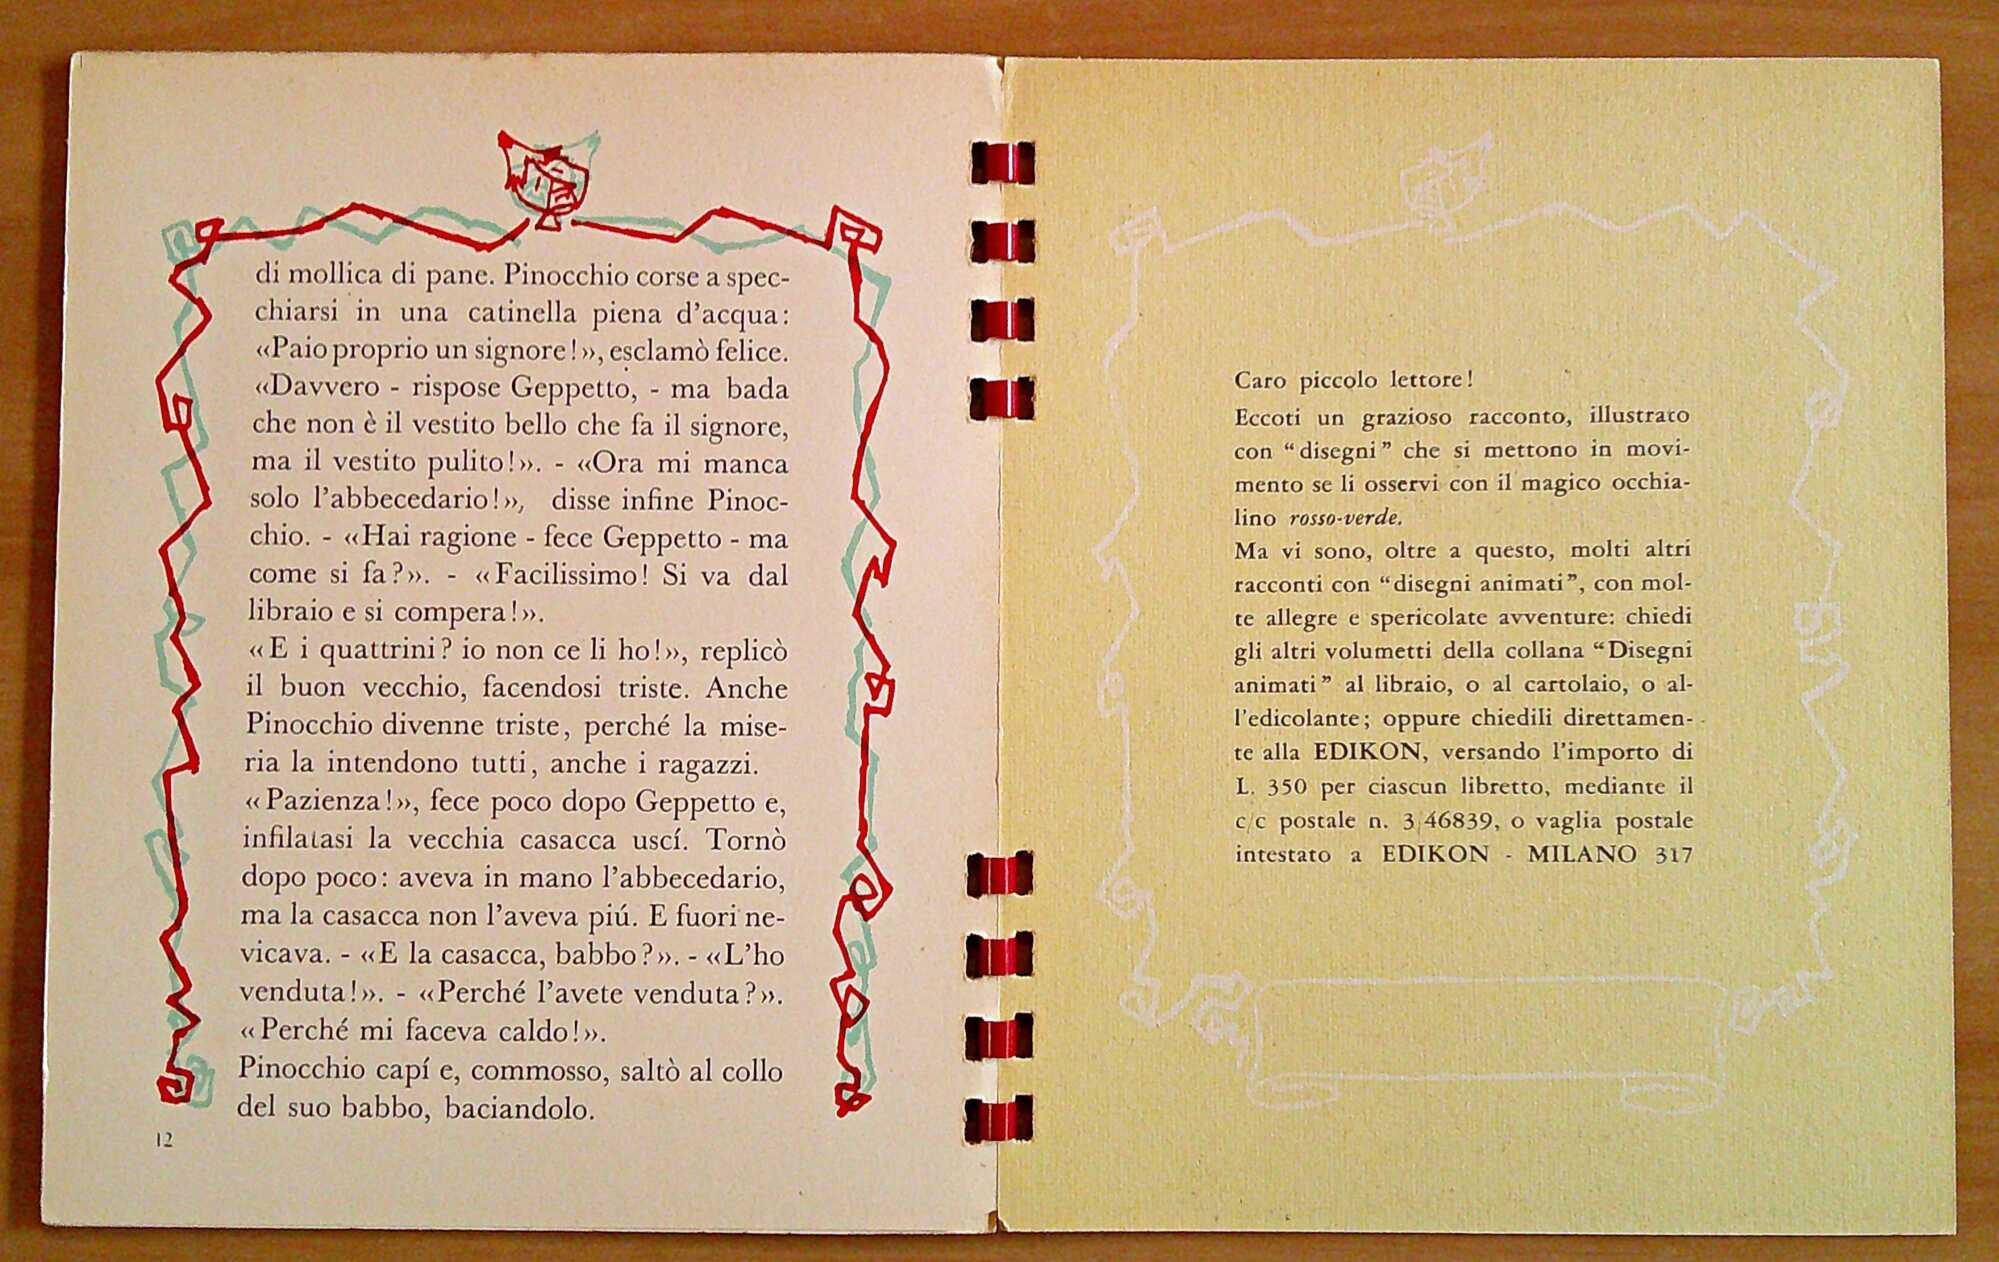 di mollica di pane. Pinocchio corse a spec-
chiarsi in una catinella piena d'acqua:
«Paio proprio un signore!», esclamò felice.
«Davvero - rispose Geppetto, - ma bada
che non è il vestito bello che fa il signore,
ma il vestito pulito!». - «Ora mi manca
solo l'abbecedario!», disse infine Pinoc-
chio. - «Hai ragione - fece Geppetto - ma
come si fa?». - «Facilissimo! Si va dal
libraio e si compera!».
«E i quattrini? io non ce li ho!», replicò
il buon vecchio, facendosi triste. Anche
Pinocchio divenne triste, perché la mise-
ria la intendono tutti, anche i ragazzi.
«Pazienza!», fece poco dopo Geppetto e,
infilatasi la vecchia casacca uscí. Tornò
dopo poco: aveva in mano l'abbecedario,
ma la casacca non l'aveva piú. E fuori ne-
vicava. - «E la casacca, babbo?». - «L'ho
venduta!». - «Perché l'avete venduta?».
«Perché mi faceva caldo!».
Pinocchio capí e, commosso, saltò al collo
del suo babbo, baciandolo.
12
Caro piccolo lettore!
Eccoti un grazioso racconto, illustrato
con “disegni” che si mettono in movi-
mento se li osservi con il magico occhia-
lino rosso-verde.
Ma vi sono, oltre a questo, molti altri
racconti con “disegni animati”, con mol-
te allegre e spericolate avventure: chiedi
gli altri volumetti della collana “Disegni
animati” al libraio, o al cartolaio, o al-
l'edicolante; oppure chiedili direttamen-
te alla EDIKON, versando l'importo di
L. 350 per ciascun libretto, mediante il
c/c postale n. 3/46839, o vaglia postale
intestato a EDIKON - MILANO 317